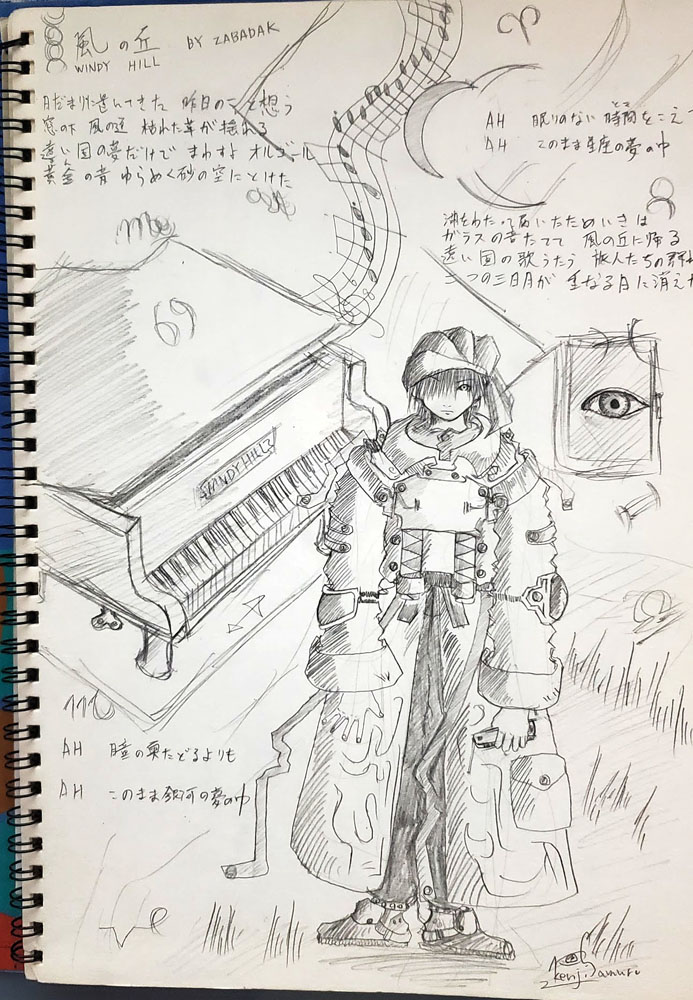 風の丘 BY ZABADAK
WINDY HILL
日だまりに置いてきた 昨日のこと想う
窓の下 風の道 枯れた草が揺れる
遠い国の夢だけで まわすよ オルゴール
黄金の青 ゆらめく砂の空にとけた
AH 眠りのない時間をこえ
AH このまま星座の夢の中
湖をわたって届いたためいきは
ガラスの音たてて 風の丘に帰る
遠い国の歌うたう 旅人たちの群れ
二つの三日月が 重なる日に消えた
69
WINDY HILL
AH 瞳の奥たどるよりも
AH このまま銀河の夢の中
kenji